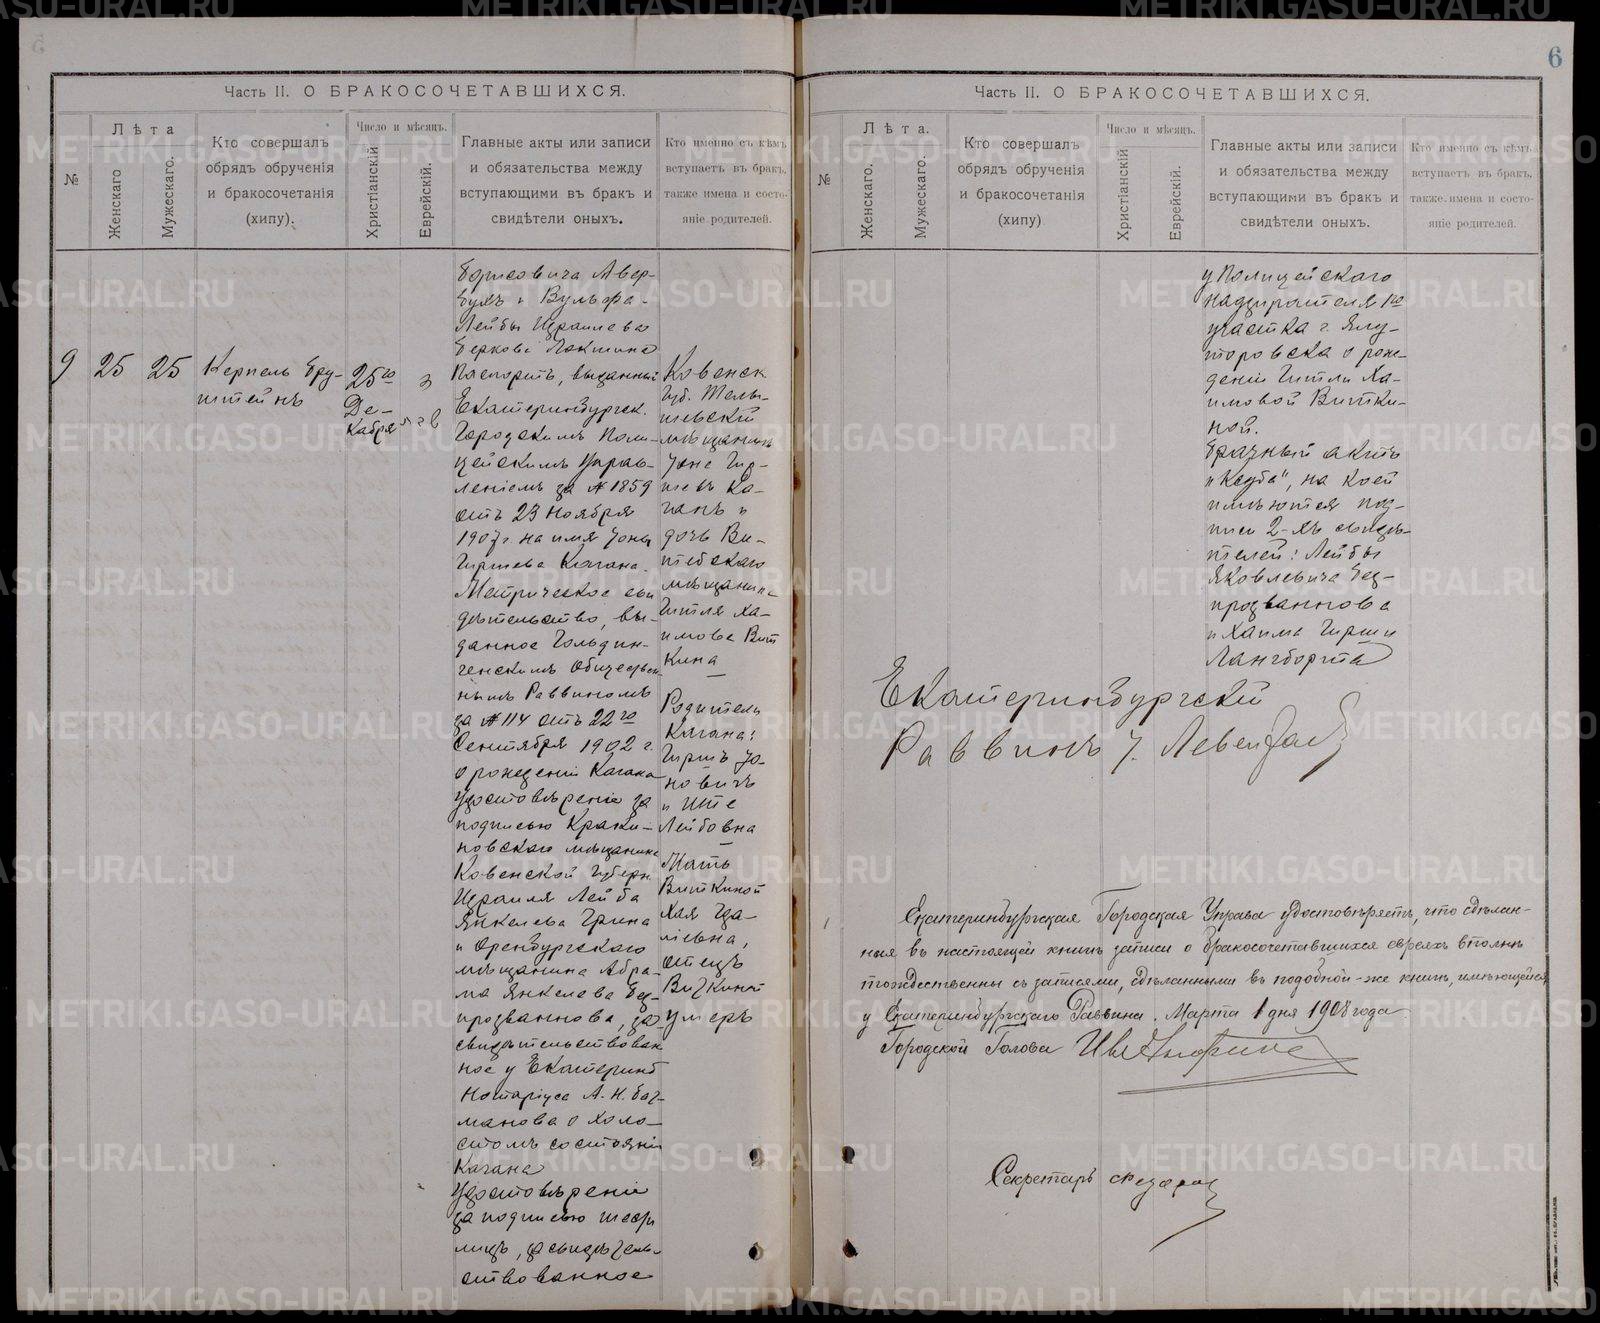 Часть II. О БРАКОСОЧЕТАВШИХСЯ.
№
Лѣта
Женскаго
Мужескаго.
Кто совершалъ
обрядъ обрученія
и бракосочетанія
(хипу).
Число и мѣсяцъ.
Христіанскій
Еврейскій.
Главные акты или записи
и обязательства между
вступающими въ бракъ и
свидѣтели оныхъ.
Кто именно съ кѣмъ
вступаетъ въ бракъ,
также имена и состо-
яніе родителей.
9
25
25
Керпель Бру-
штейнъ
25го
Де-
кабря
Борисовича Авер-
бухъ и Вульфа-
Лейбы Израилева
Беркова Локшина
Паспортъ, выданный
Екатеринбургск.
Городскимъ Поли-
цейскимъ Управ-
леніемъ за № 1859
отъ 23 Ноября
1907 г. на имя Іоны
Гиршева Кагана.
Метрическое сви
дѣтельство, вы-
данное Гольдин-
генскимъ Обществен
нымъ Раввиномъ
за № 114 отъ 22го
Сентября 1902 г.
о рожденіи Кагана
Удостовѣреніе за
подписью Краки-
новскаго мѣщанина
Ковенской Губерн.
Израиля Лейба
Янкелева Грина
и Оренбургскаго
мѣщанина Абра-
ма Янкелева Без-
прозваннова, за-
свидѣтельствован
ное у Екатеринб
Нотаріуса А. Н. Баг-
манова о холо-
стомъ состояніи
Кагана
Удостовѣреніе
за подписью шести
лицъ, засвидѣтель-
ствованное
Ковенск
Губ. Тельш-
шевскій
мѣщанинъ
Іоне Гир-
шевъ Ка-
ганъ и
дочь Ви-
тебскаго
мѣщанина
Гитля Ха-
имова Вит
кина
Родители
Кагана:
Гиршъ Іо-
новичъ
и Ите
Лейбовна
Мать
Виткиной
Хая
отецъ
Виткиной
умеръ
6
Часть II. О БРАКОСОЧЕТАВШИХСЯ.
№
Лѣта.
Женскаго.
Мужескаго.
Кто совершалъ
обрядъ обрученія
и бракосочетанія
(хипу)
Число и мѣсяцъ.
Христіанскій
Еврейскій.
Главные акты или записи
и обязательства между
вступающими въ бракъ и
свидѣтели оныхъ.
Кто именно съ кѣмъ
вступаетъ въ бракъ,
также имена и состо-
яніе родителей.
у Полицейскаго
надзирателя 1го
участка г. Ялу-
торовска о рож-
деніи Гитли Ха-
имовой Витки-
ной.
Брачный актъ
"Кеуба", на коей
имѣются под-
писи 2-хъ свидѣ-
телей: Лейбы
Яковлевича Без-
прозваннова
и Хаима Гирши
Лангборта
Екатеринбургскій
Раввинъ І. Левенталь
Екатеринбургская Городская Управа удостовѣряетъ, что сдѣлан-
ныя въ настоящей книгѣ записи о бракосочетавшихся евреяхъ вполнѣ
тождественны съ записями, сдѣланными въ подобной-же книгѣ, имѣющейся
у Екатеринбургскаго Раввина. Марта 1 дня 1908 года.
Городской Голова
Секретарь
METRIKI.GASO-URAL.RU